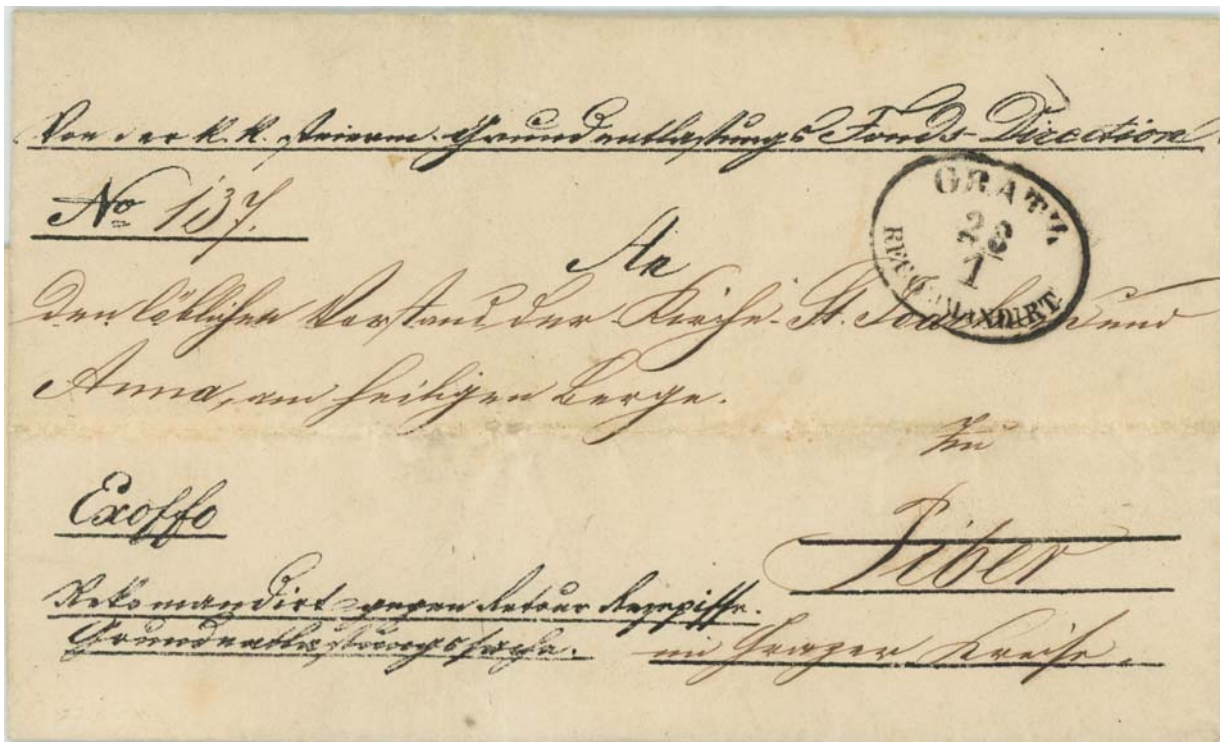 Von der k. k. steierm. Grundentlastungs Fonds-Direction
No 137.
GRATZ
26
1
RECOMMANDIRT
An
den löblichen Vorstand der Kirche St. und
Anna, am heiligen Berge.
Zu
Exoffo
Piber
Rekomandirt gegen Retour Rezepisse.
Grundentlastungssache.
im Grazer Kreise.